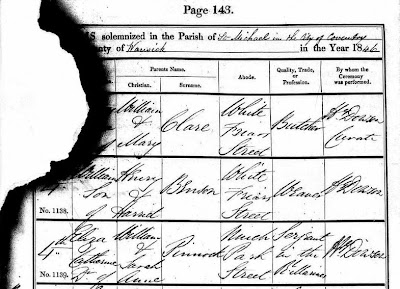 Page 143.
MS solemnized in the Parish of St Michael in the City of Coventry
County of Warwick in the Year 1846
Parents Name. Quality, Trade, By whom the
Christian. Surname. Abode. or Ceremony
Profession. was performed.
William White
& Clare Friars Butcher
Mary Street Curate
William Henry White
Son & Benson Friars Weaver
of Harriet Street
No. 1138.
4th Eliza William Much Serjeant
Catharine & Pinnock Park in the
Dr of Sarah Street
No. 1139. Anne